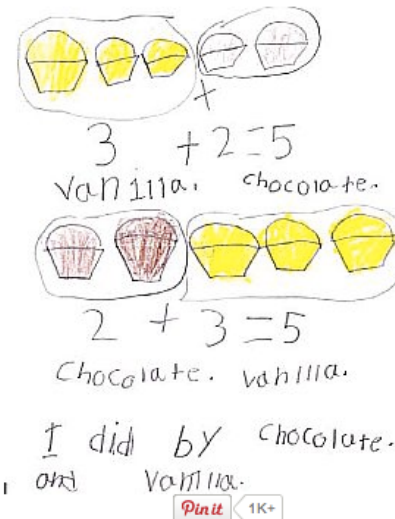 +
3 + 2 = 5
vanilla. chocolate.
2 + 3 = 5
chocolate. vanilla.
I did by chocolate.
and vanilla.
Pin it 1K+